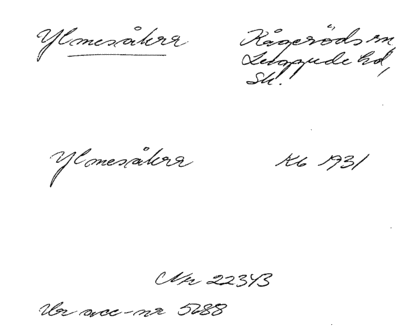 Ylmesåkra Kågeröds sn,
Luggude hd,
Sk.
Ylmesåkra Kb 1931
Nr 22343
Ur acc-nr 5688